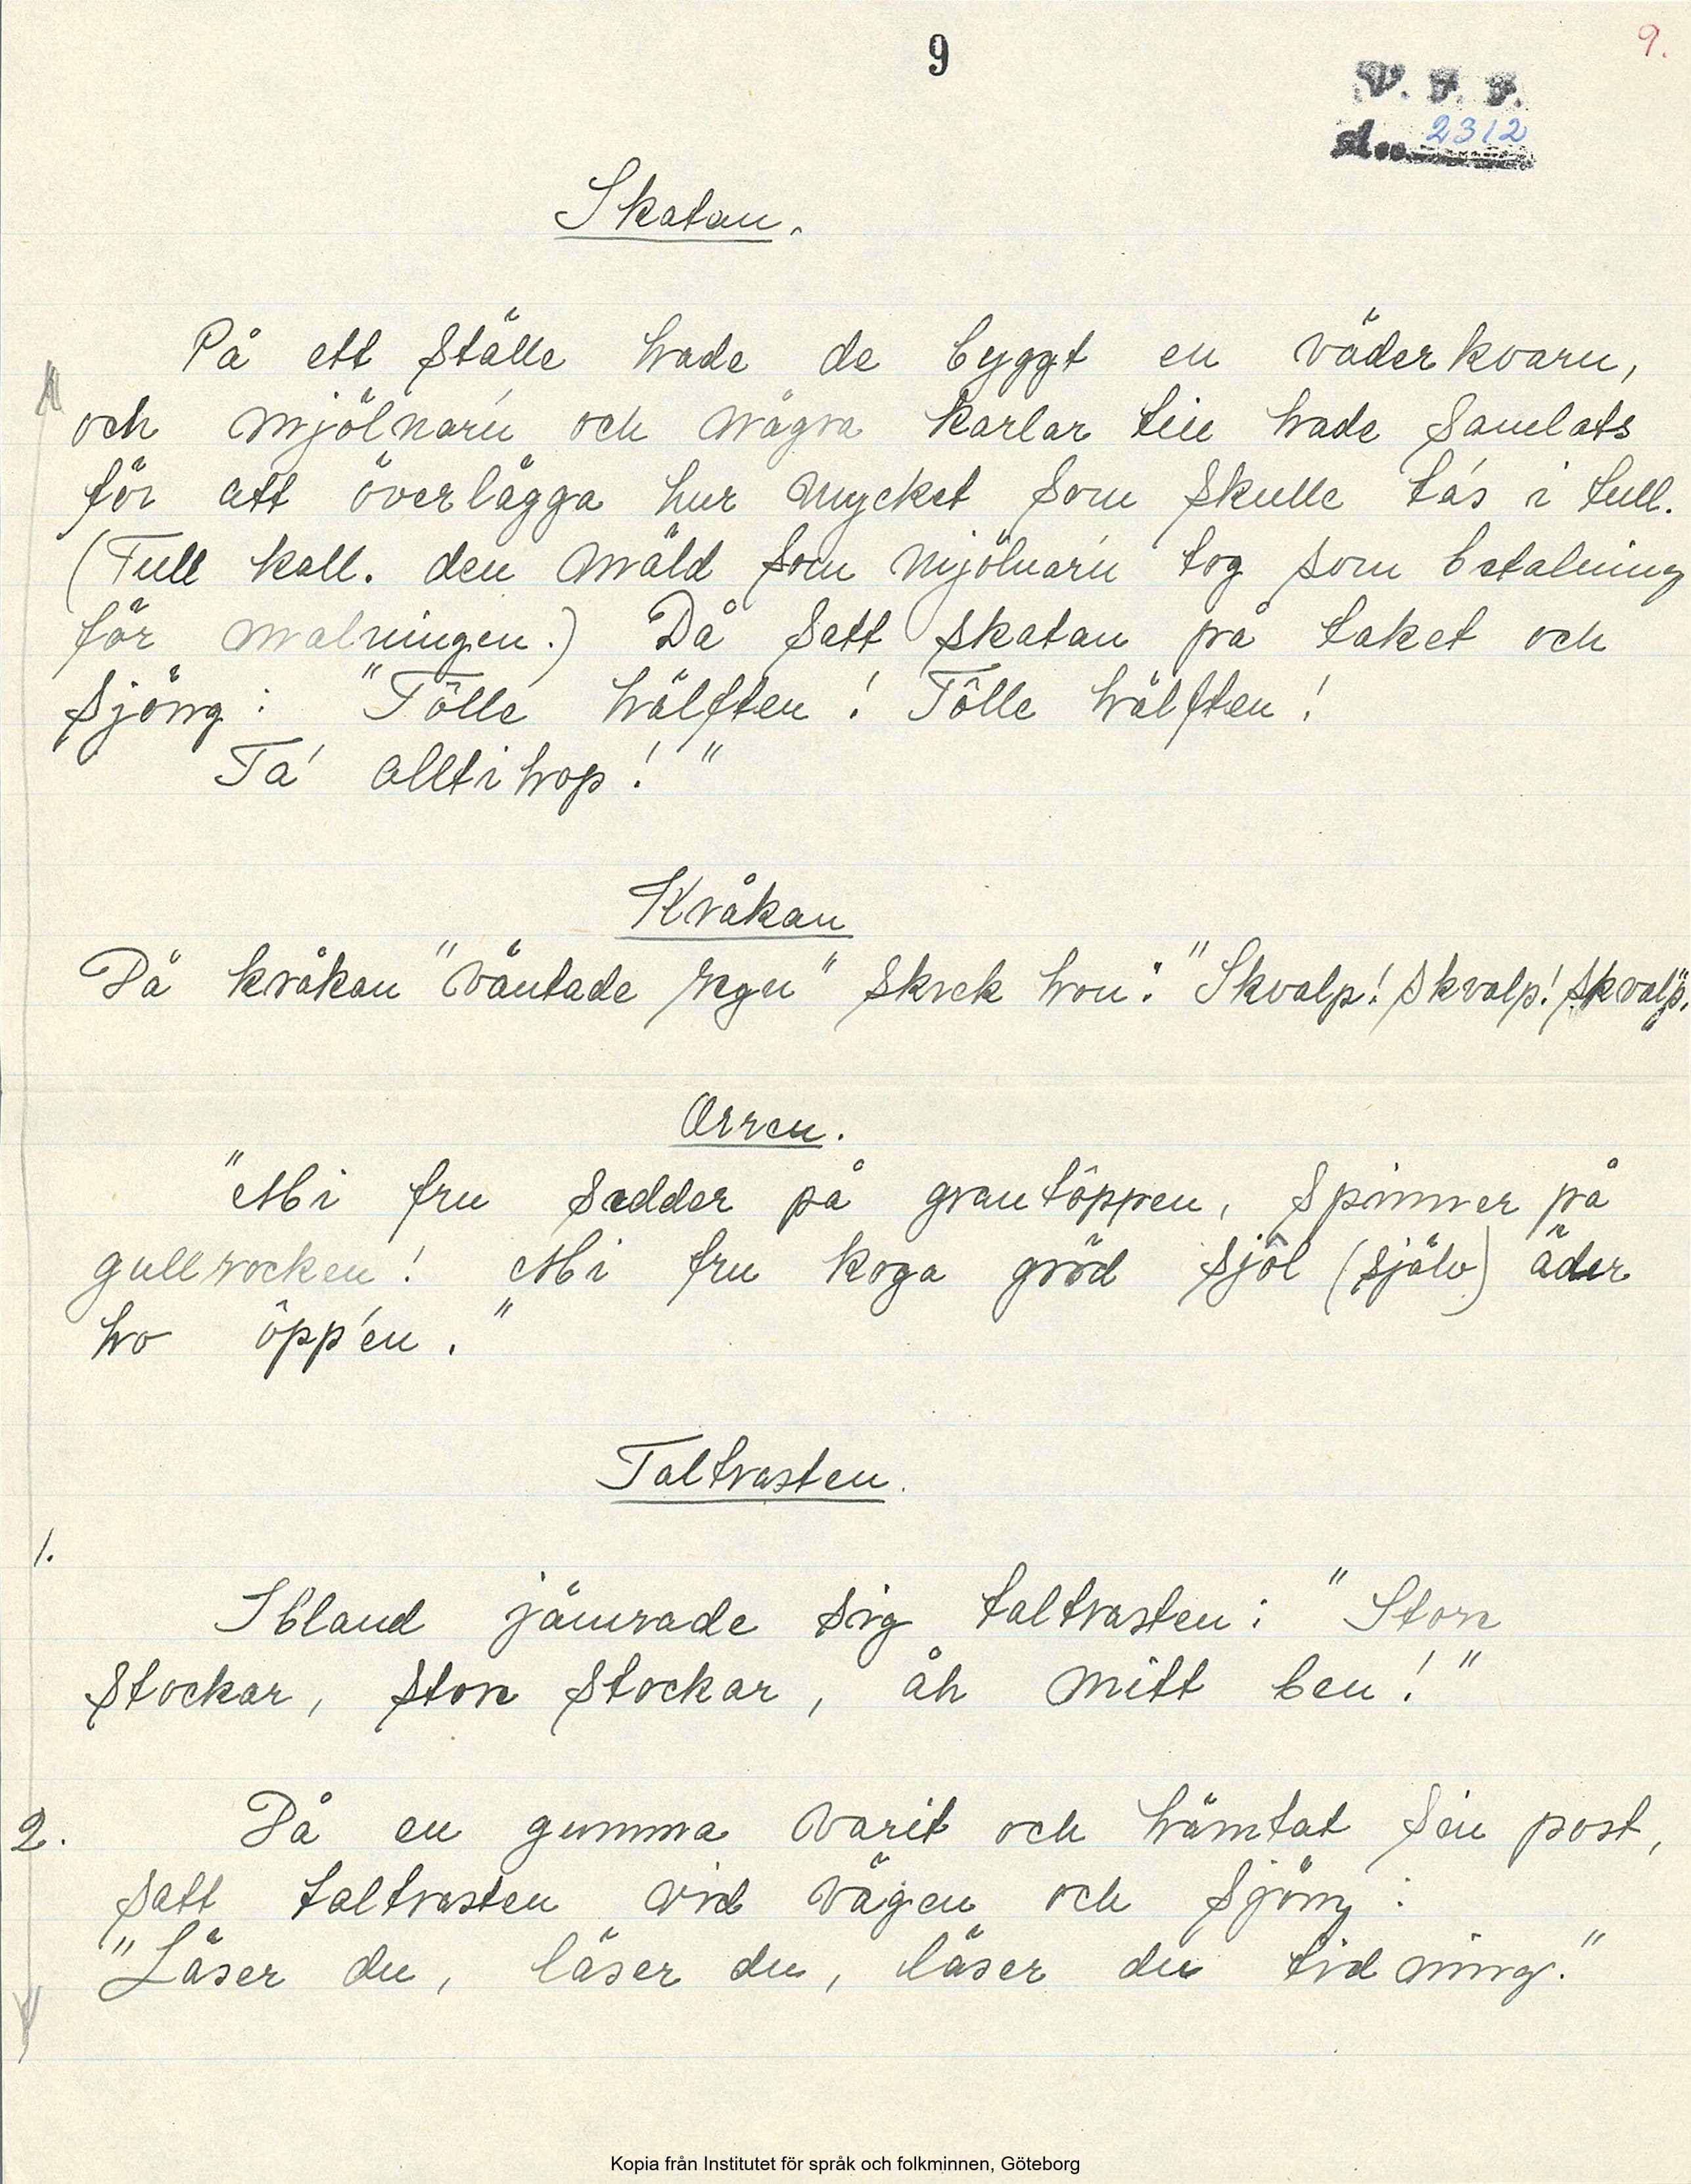 9
9.
V. F. F.
2312
Skatan.
På ett ställe hade de byggt en väderkvarn,
och mjölnarń och några karlar till hade samlats
för att överlägga hur mycket som skulle ta's i tull.
(Tull kall. den mäld som mjölnarń tog som betalning
för malningen.) Då satt skatan på taket och
sjöng: "Tôlle hälften! Tôlle hälften!
Ta' alltihop!"
Kråkan
Då kråkan "väntade regn" skrek hon: "Skvalp! skvalp! skvalp".
Orren.
"Mi fru sedder på grantôppen, spinner på
gullrocken! Mi fru koga gröd sjôl (själv) äder
ho ôpp'en."
Taltrasten.
1.
Ibland jämrade sig taltrasten: "Store
stockar, store stockar, åh mitt ben!"
2. Då en gumma varit och hämtat sin post,
satt taltrasten vid vägen och sjöng:
"Läser du, läser du, läser du tidning."
Kopia från Institutet för språk och folkminnen, Göteborg